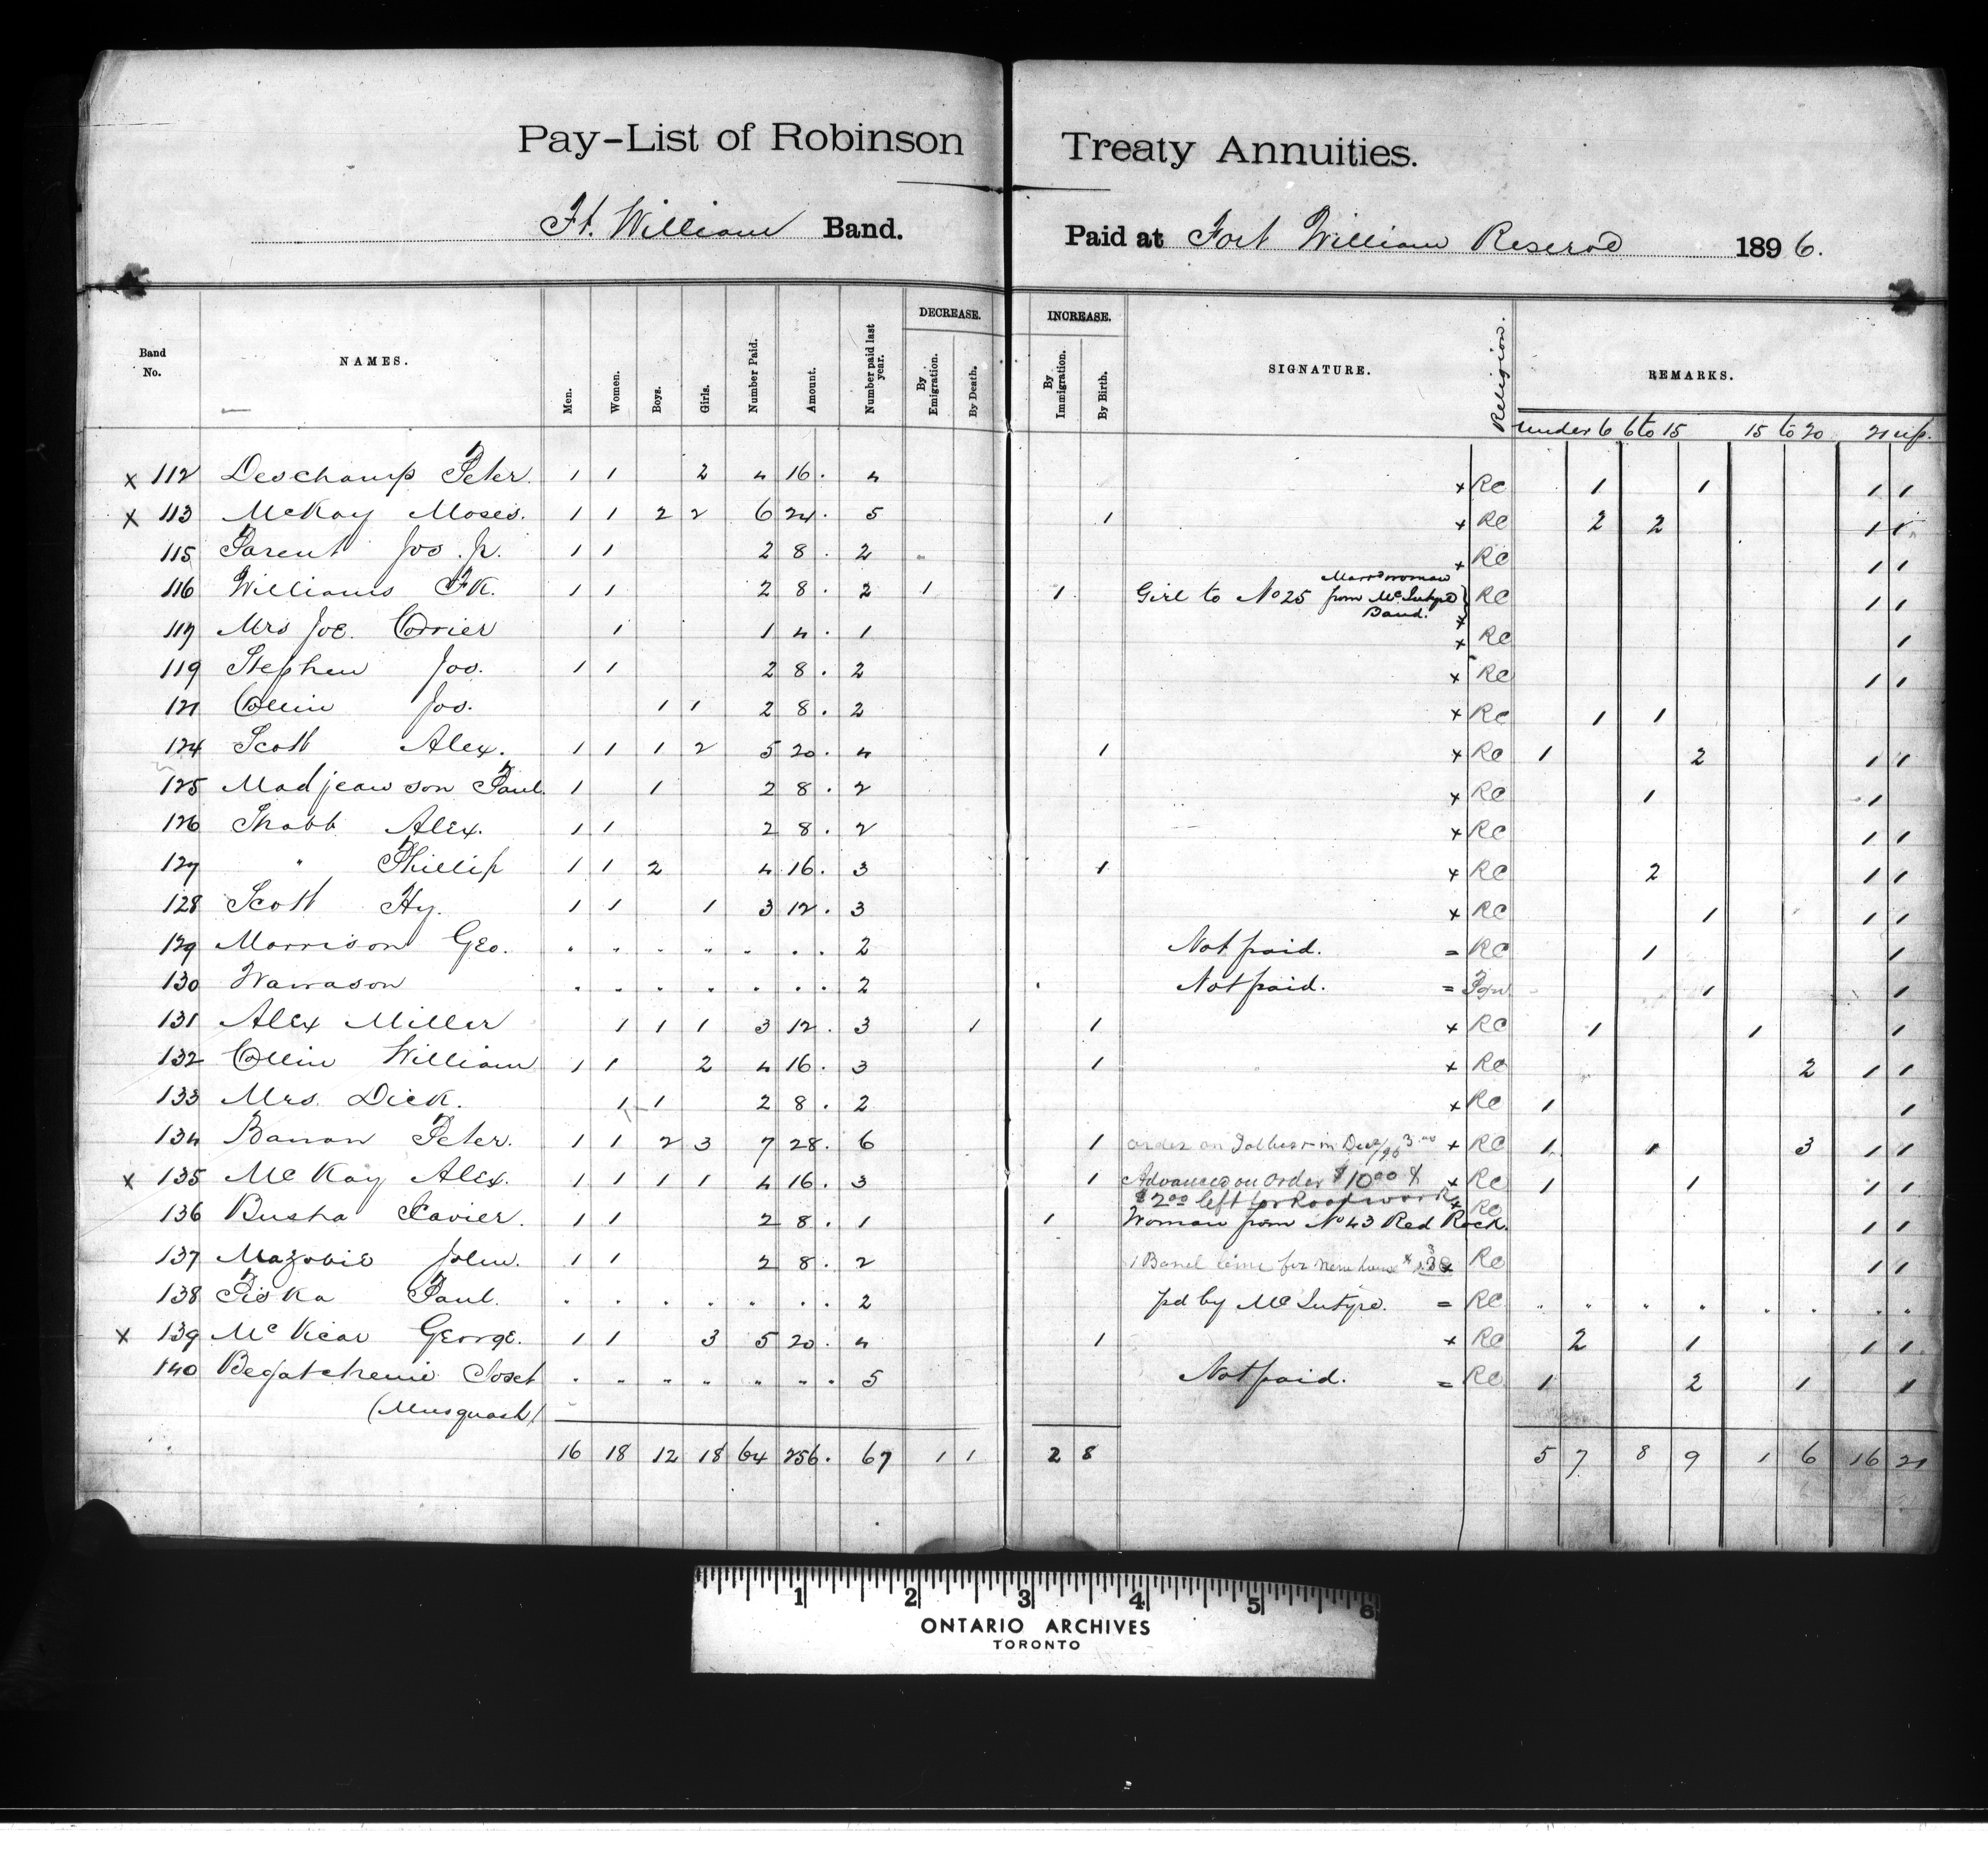 Pay-List of Robinson Treaty Annuities.
Ft. William Band. Paid at Fort William Reserve 1896.
Band No. NAMES. Men. Women. Boys. Girls. Number Paid. Amount. Number paid last year. DECREASE. By Emigration. By Death. INCREASE. By Immigration. By Birth. SIGNATURE. Religion. REMARKS.
under 6 6 to 15 15 to 20 21 up.
x 112 Deschamp Peter. 1 1 2 4 16. 4 x RC 1 1 1 1
x 113 McKay Moses. 1 1 2 2 6 24. 5 1 x RC 2 2 1 1
115 Parent Jos. Jr. 1 1 2 8. 2 x RC 1 1
116 Williams FK. 1 1 2 8. 2 1 1 Girl to No 25 Marrd woman from McIntyre Band. x RC 1 1
117 Mrs Joe. Corrier 1 1 4. 1 x RC 1
119 Stephen Jos. 1 1 2 8. 2 x RC 1 1
121 Collin Jos. 1 1 2 8. 2 x RC 1 1
124 Scott Alex. 1 1 1 2 5 20. 4 1 x RC 1 2 1 1
125 Madjeawson Paul. 1 1 2 8. 2 x RC 1 1
126 Shabb Alex. 1 1 2 8. 2 x RC 1 1
127 " Phillip 1 1 2 4 16. 3 1 x RC 2 1 1
128 Scott Hy. 1 1 1 3 12. 3 x RC 1 1 1
129 Morrison Geo. . . . . . . . 2 Not paid. = RC 1 1
130 Wawason . . . . . . . 2 Not paid. = 1 1
131 Alex Miller 1 1 1 3 12. 3 1 1 x RC 1 1 1
132 Collin William 1 1 2 4 16. 3 1 x RC 2 1 1
133 Mrs. Dick. 1 1 2 8. 2 x RC 1 1
134 Banon Peter. 1 1 2 3 7 28. 6 1 order on in Dec/95 3.00 x RC 1 1 3 1 1
x 135 McKay Alex. 1 1 1 1 4 16. 3 1 Advanced on order $10.00 & x RC 1 1 1 1
$2.00 left for Roof work x RC
136 Busha Xavier. 1 1 2 8. 1 1 Woman from No 43 Red Rock. 1 1
137 Mazobie John. 1 1 2 8. 2 1 Barrel lime for new house RC 1 1
138 Piska Paul. . . . . . . . 2 pd by McIntyre. = RC . . . . . . . .
x 139 McVicar George. 1 1 3 5 20. 4 1 x RC 2 1 1 1
140 Begatchenie Joset . . . . . . . 5 Not paid. = RC 1 2 1 1
(Musquash)
16 18 12 18 64 256. 67 1 1 2 8 5 7 8 9 1 6 16 21
1 2 3 4 5 6
ONTARIO ARCHIVES
TORONTO